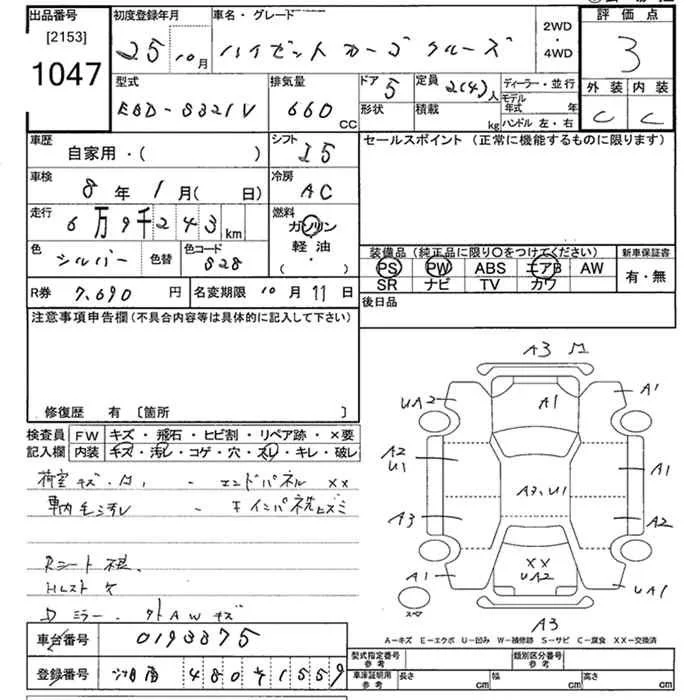 出品番号 初度登録年月 車名・グレード 評価点
[2153]
1047
25 10月 ハイゼットカーゴ クルーズ 2WD・4WD 3
型式 排気量 ドア 5 定員 2(4)人 ディーラー・並行 外装 内装
EBD-S321V 660 CC 形状 積載 kg モデル年式 年 ハンドル 左・右 C C
車歴 シフト セールスポイント (正常に機能するものに限ります)
自家用・( ) I5
車検 8年 1月( 日) 冷房 AC
走行 6万9千243km 燃料 ガソリン
軽油
( ・ )
色 シルバー 色替 色コード S28
装備品(純正品に限り○をつけてください) 新車保証書
PS PW ABS エアB AW 有・無
SR ナビ TV カワ
R券 7,690円 名変期限 10月11日 後日品
注意事項申告欄(不具合内容等は具体的に記入して下さい)
修復歴 有 [箇所 ]
検査員 FW キズ・飛石・ヒビ割・リペア跡・×要
記入欄 内装 キズ・汚レ・コゲ・穴・スレ・キレ・破レ
荷室キズ・凹 - エンドパネル XX
車内 - インパネ
Rシート
Dミラー・ AWキズ
A3
UA2 A1 A1
A2 U1 A1
A3 A2, U1 A2
XX
A1 UA2 UA1
スペア
A3
A-キズ E-エクボ U-凹み W-補修跡 S-サビ C-腐食 XX-交換済
車台番号 0193375
型式指定番号 参考 類別区分番号 参考
登録番号 480 1559
車庫証明用 参考 長さ cm 幅 cm 高さ cm